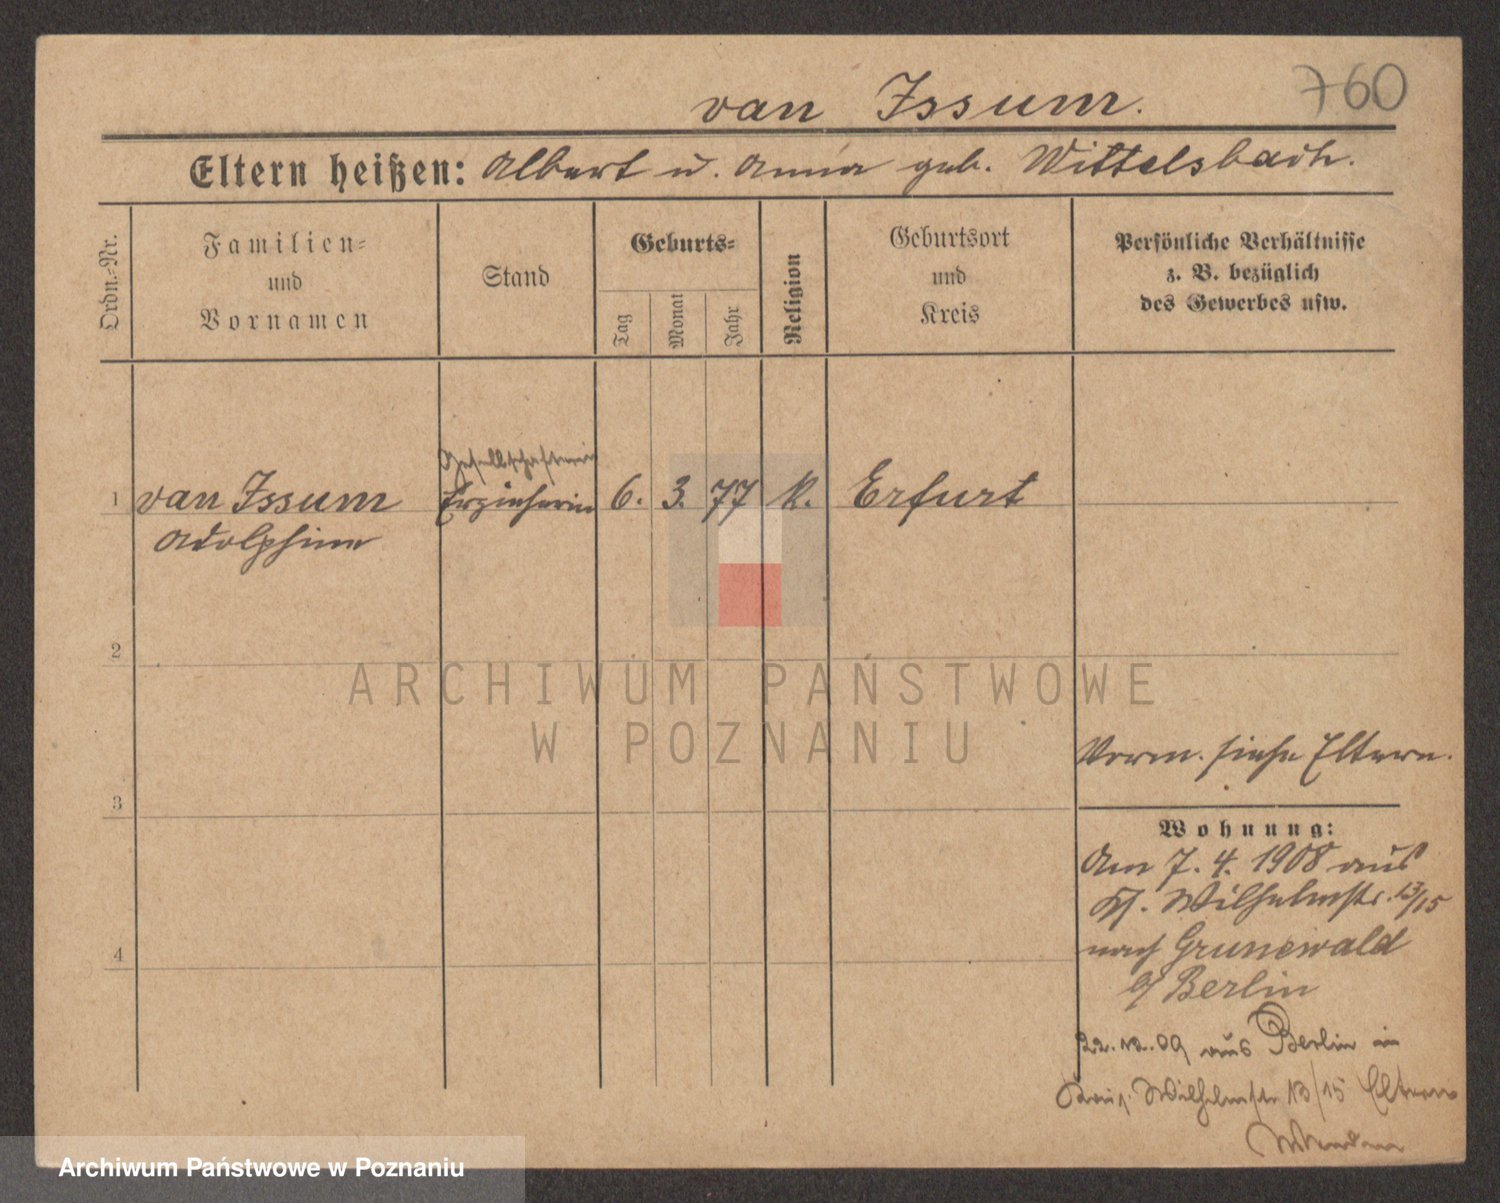 van Issum.
760
Eltern heißen: Albert u. Anna geb. Wittelsbach.
Ordn.-Nr.
Familien-
und
Vornamen
Stand
Geburts-
Tag
Monat
Jahr
Religion
Geburtsort
und
Kreis
Persönliche Verhältnisse
z. B. bezüglich
des Gewerbes usw.
Gesellschafterin
1 van Issum Erzieherin 6. 3. 77 k. Erfurt
Adolphine
2
ARCHIWUM PAŃSTWOWE
W POZNANIU
Verm. siehe Eltern.
3
Wohnung:
Am 7. 4. 1908 aus
Wilhelmstr. 13/15
nach Grunewald
b/ Berlin
4
22.12.09 aus Berlin in
Wilhelmstr 13/15 Eltern
Archiwum Państwowe w Poznaniu